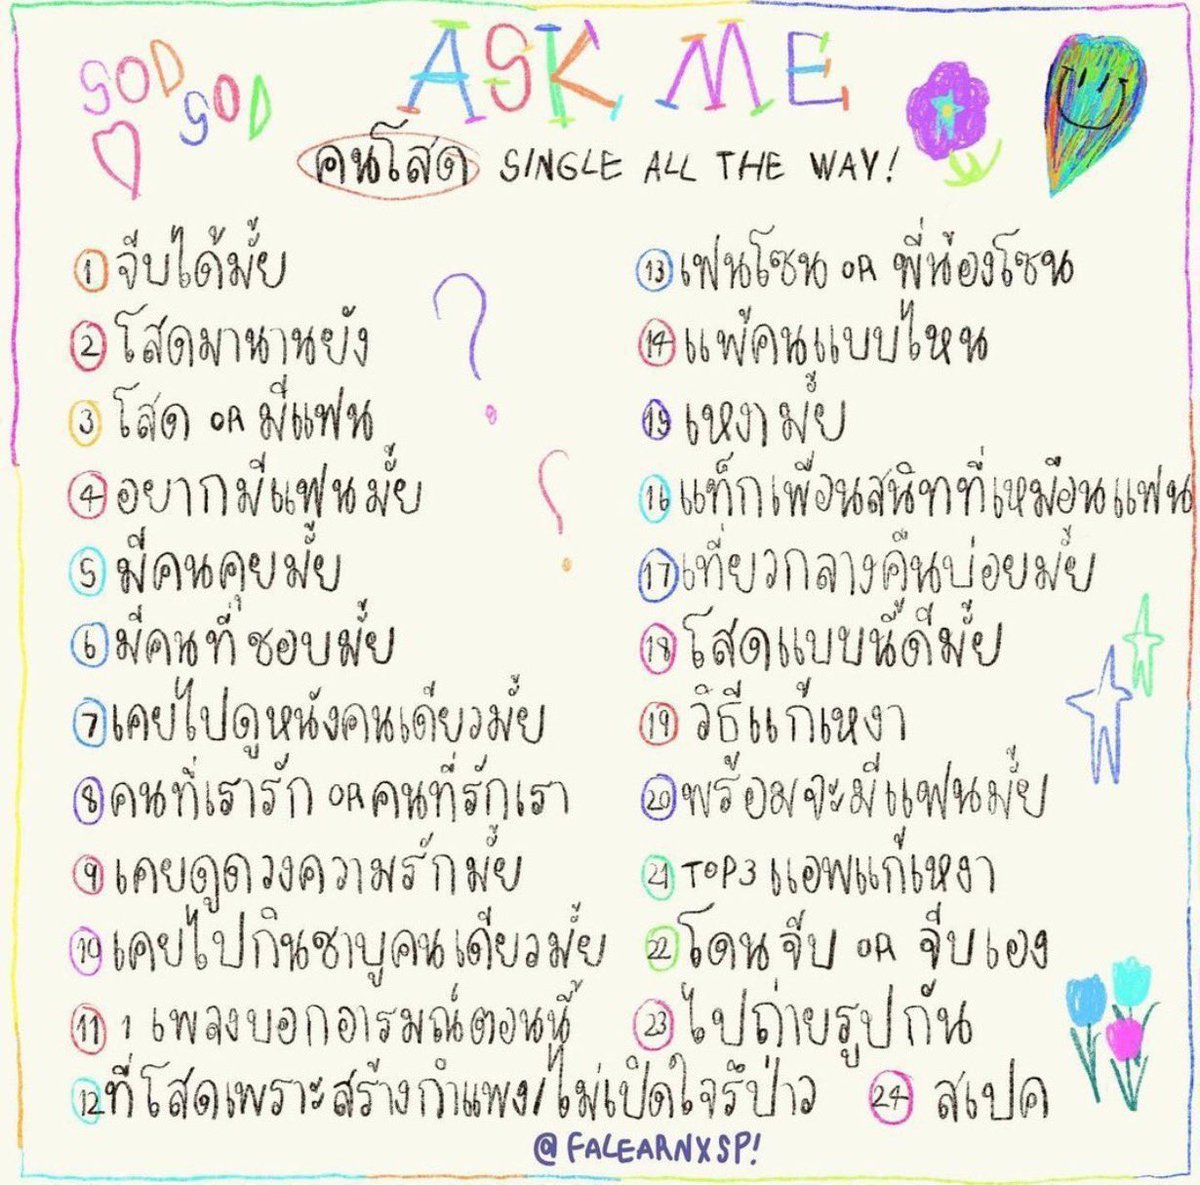 SOD
SOD
ASK ME
คนโสด SINGLE ALL THE WAY!
1 จีบได้มั้ย
2 โสดมานานยัง
3 โสด OR มีแฟน
4 อยากมีแฟนมั้ย
5 มีคนคุยมั้ย
6 มีคนที่ชอบมั้ย
7 เคยไปดูหนังคนเดียวมั้ย
8 คนที่เรารัก OR คนที่รักเรา
9 เคยดูดวงความรักมั้ย
10 เคยไปกินชาบูคนเดียวมั้ย
11 1 เพลงบอกอารมณ์ตอนนี้
12 ที่โสดเพราะสร้างกำแพง/ไม่เปิดใจรึป่าว
13 เฟนโซน OR พี่น้องโซน
14 แพ้คนแบบไหน
15 เหงามั้ย
16 แท็กเพื่อนสนิทที่เหมือนแฟน
17 เที่ยวกลางคืนบ่อยมั้ย
18 โสดแบบนี้ดีมั้ย
19 วิธีแก้เหงา
20 พร้อมจะมีแฟนมั้ย
21 TOP3 แอพแก้เหงา
22 โดนจีบ OR จีบเอง
23 ไปถ่ายรูปกัน
24 สเปค
@FALEARNXSP!